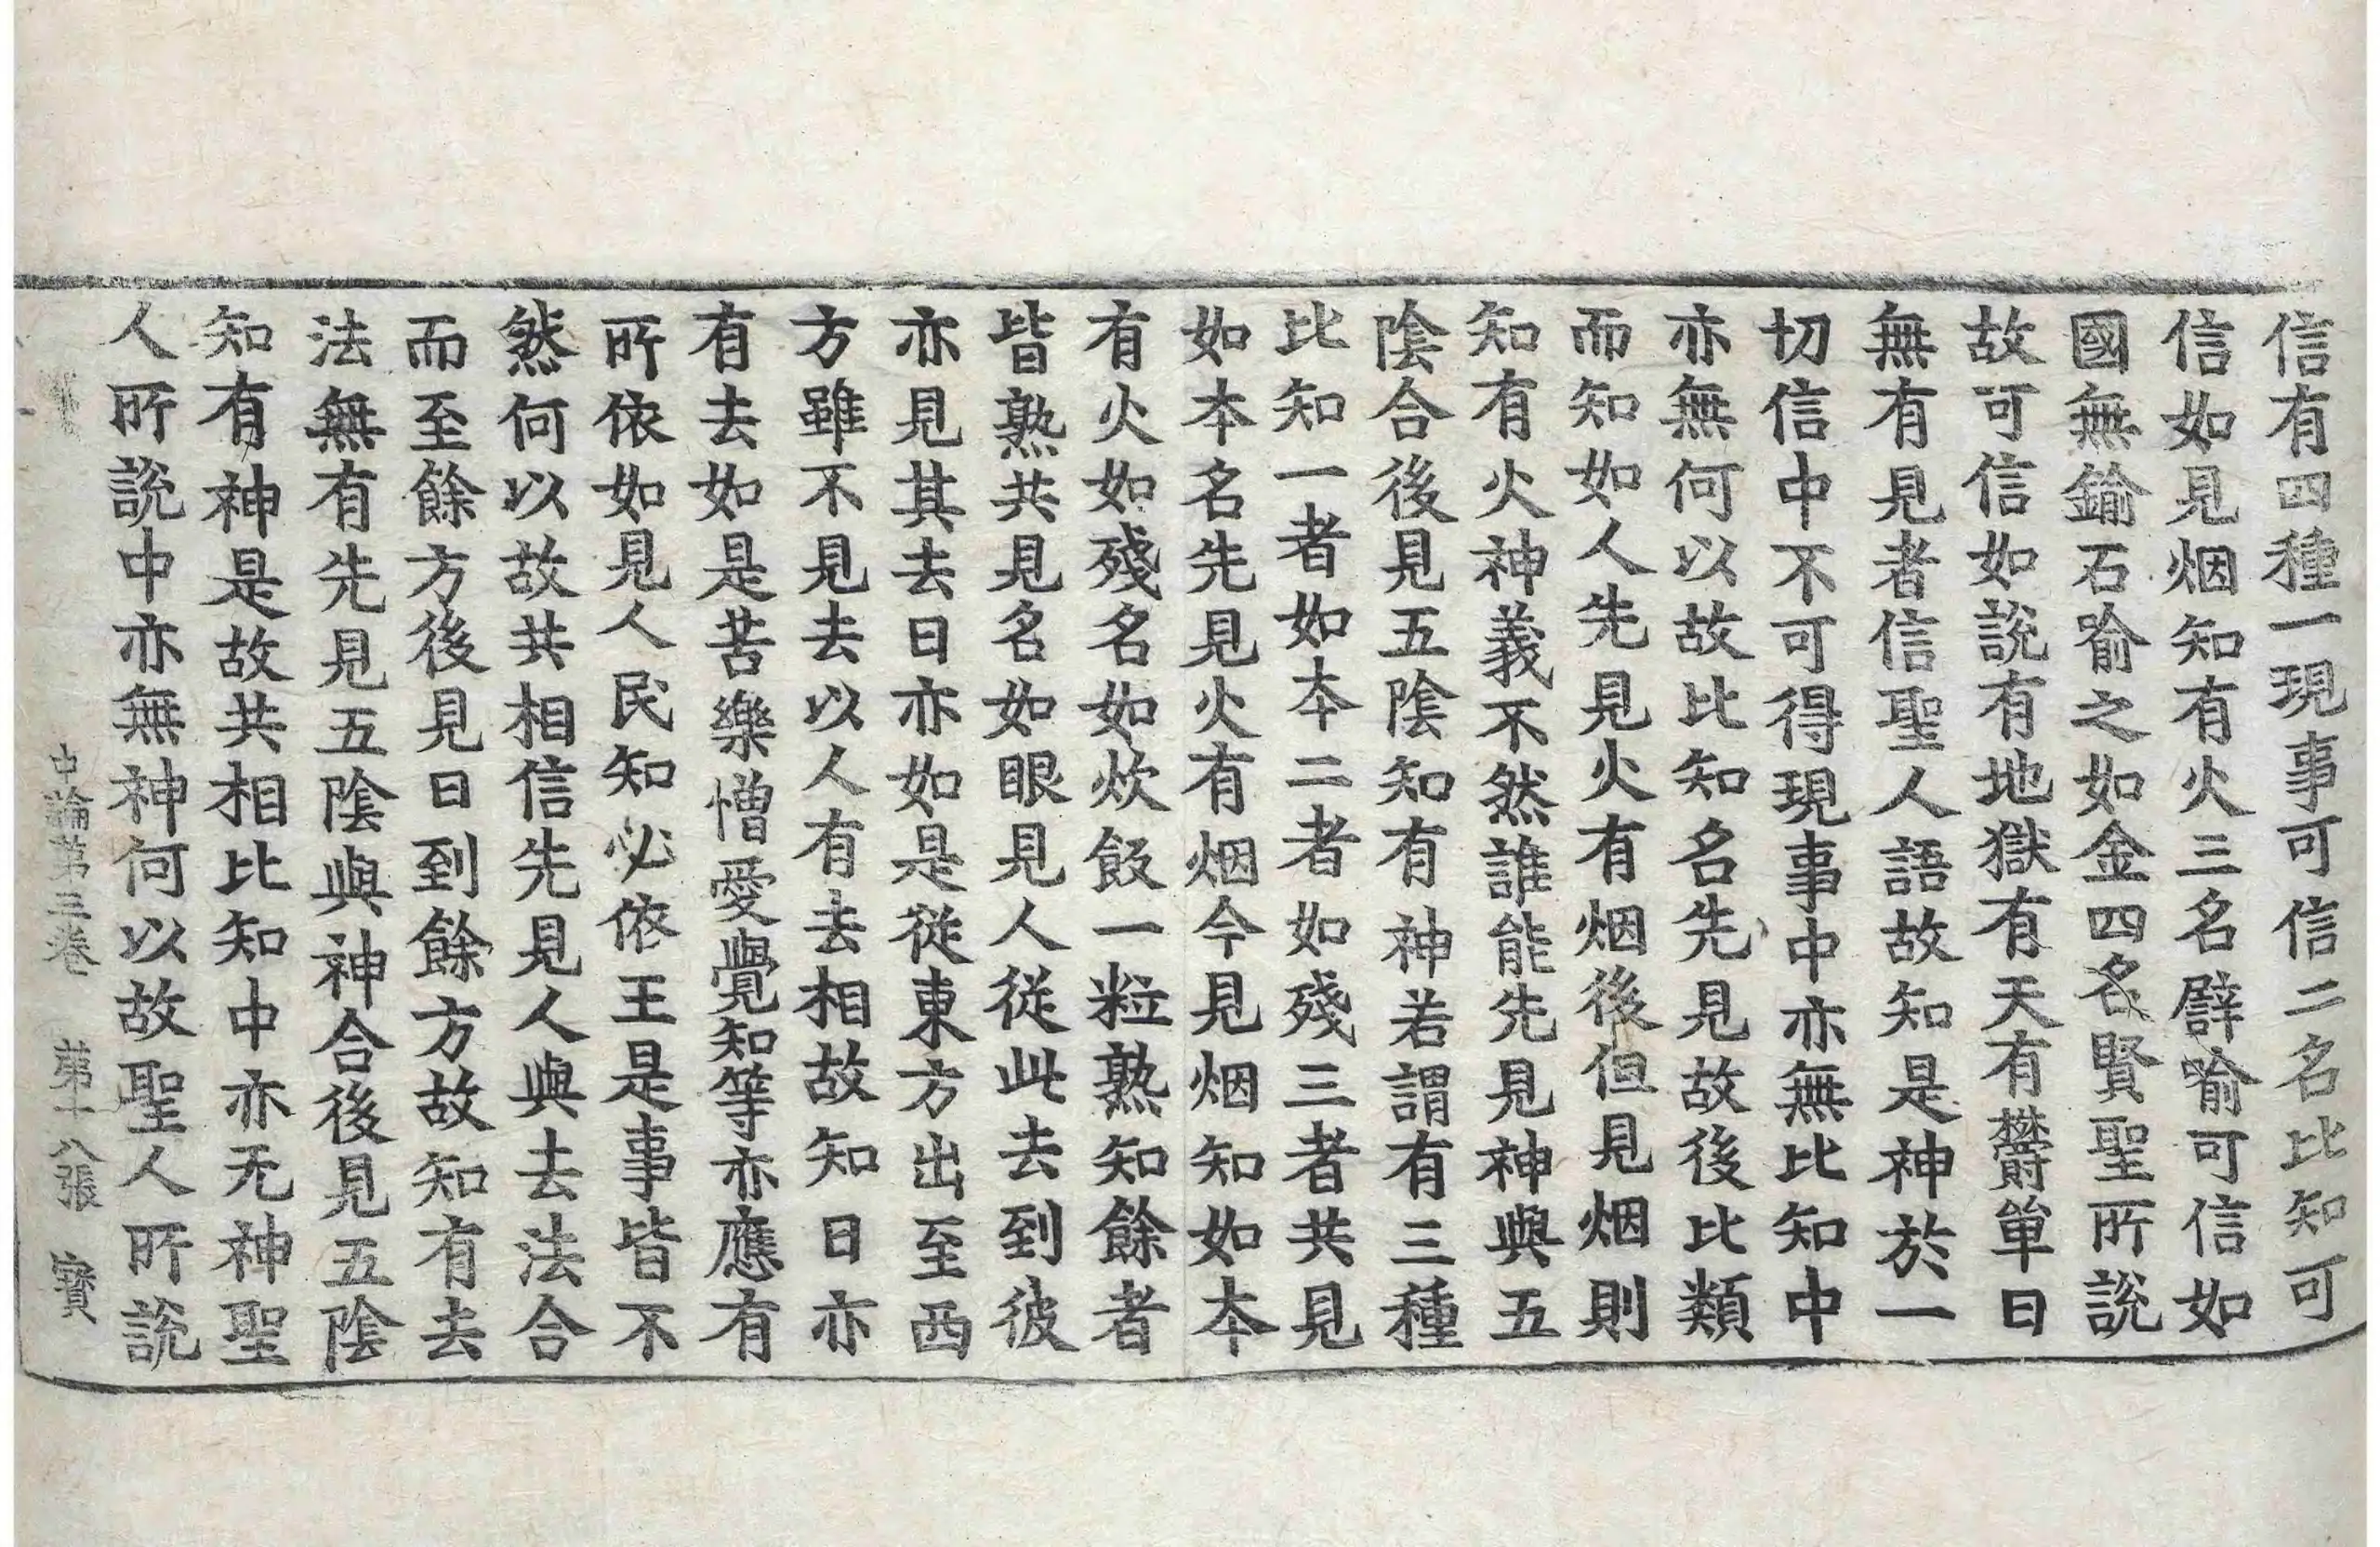 信有四種一現事可信二名比知可
信如見烟知有火三名譬喻可信如
國無鍮石喻之如金四名賢聖所說
故可信如說有地獄有天有欝單曰
無有見者信聖人語故知是神於一
切信中不可得現事中亦無比知中
亦無何以故比知名先見故後比類
而知如人先見火有烟後但見烟則
知有火神義不然誰能先見神與五
陰合後見五陰知有神若謂有三種
比知一者如本二者如殘三者共見
如本名先見火有烟今見烟知如本
有火如殘名如炊飯一粒熟知餘者
皆熟共見名如眼見人從此去到彼
亦見其去日亦如是從東方出至西
方雖不見去以人有去相故知日亦
有去如是苦樂憎愛覺知等亦應有
所依如見人民知必依王是事皆不
然何以故共相信先見人與去法合
而至餘方後見日到餘方故知有去
法無有先見五陰與神合後見五陰
知有神是故共相比知中亦无神聖
人所說中亦無神何以故聖人所說
中論第三卷 第十八張 寶